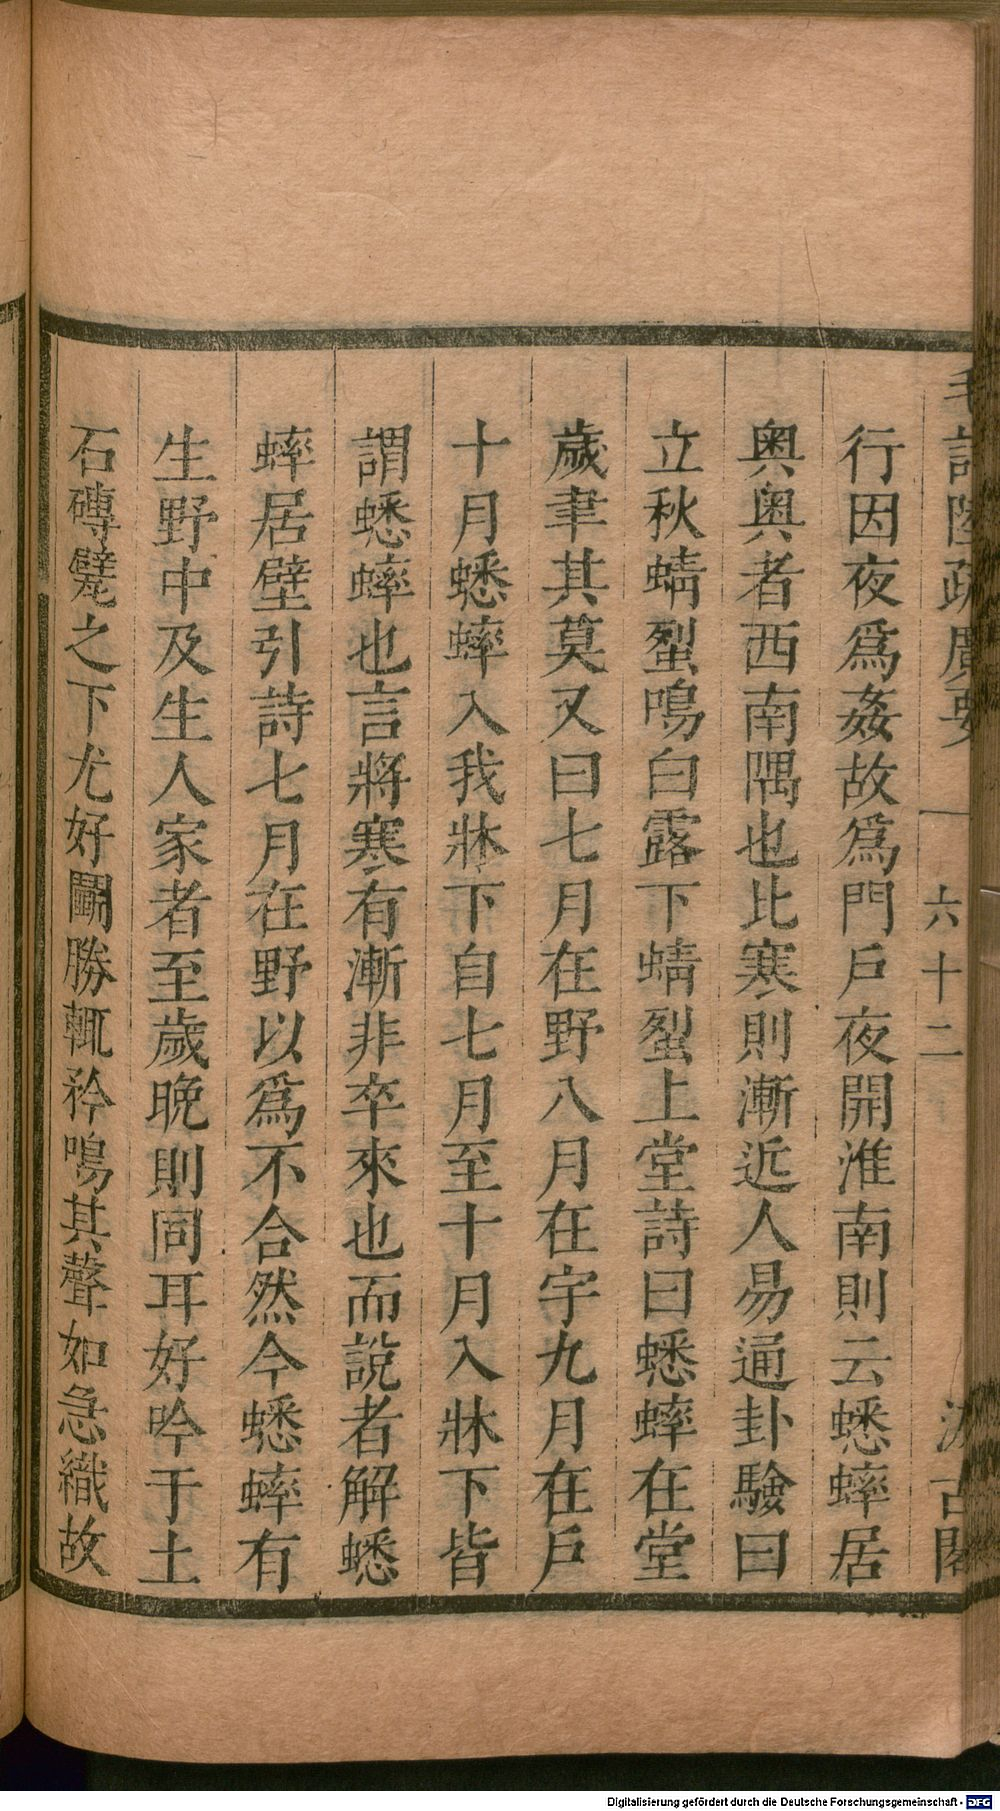 毛詩陸疏廣要
六十二
汲古閣
行因夜爲姦故爲門戶夜開淮南則云蟋蟀居
奥奥者西南隅也比寒則漸近人易通卦驗曰
立秋蜻蛚鳴白露下蜻蛚上堂詩曰蟋蟀在堂
歲聿其莫又曰七月在野八月在宇九月在戶
十月蟋蟀入我牀下自七月至十月入牀下皆
謂蟋蟀也言將寒有漸非卒來也而說者解蟋
蟀居壁引詩七月在野以爲不合然今蟋蟀有
生野中及生人家者至歲晚則同耳好吟于土
石磚甓之下尤好鬭勝輒矜鳴其聲如急織故
Digitalisierung gefördert durch die Deutsche Forschungsgemeinschaft - DFG